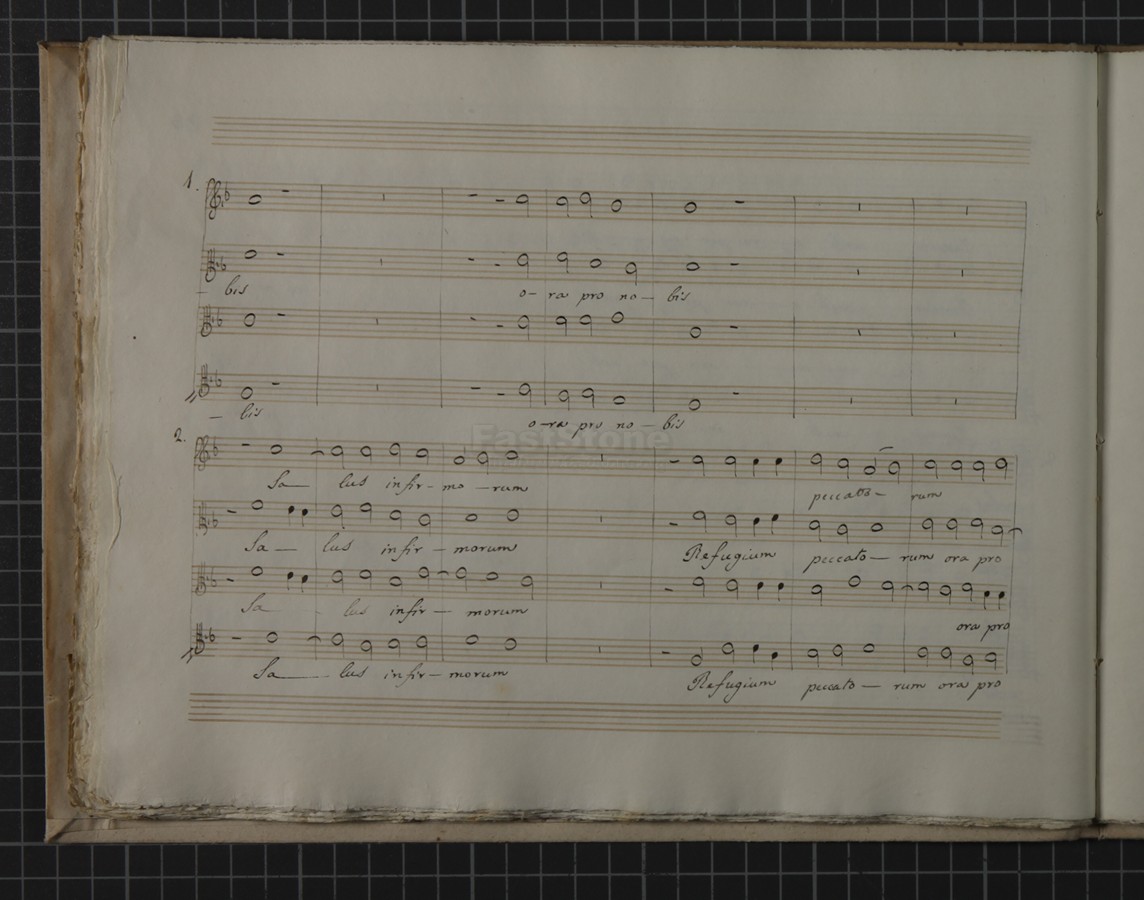 1.
– bis o – ra pro no – bis
– bis o – ra pro no – bis
EastStone
2.
Sa — lus infir – mo – rum peccato – rum
Sa — lus infir – morum Refugium peccato – rum ora pro
Sa – lus infir – morum ora pro
Sa — lus infir – morum Refugium peccato – rum ora pro